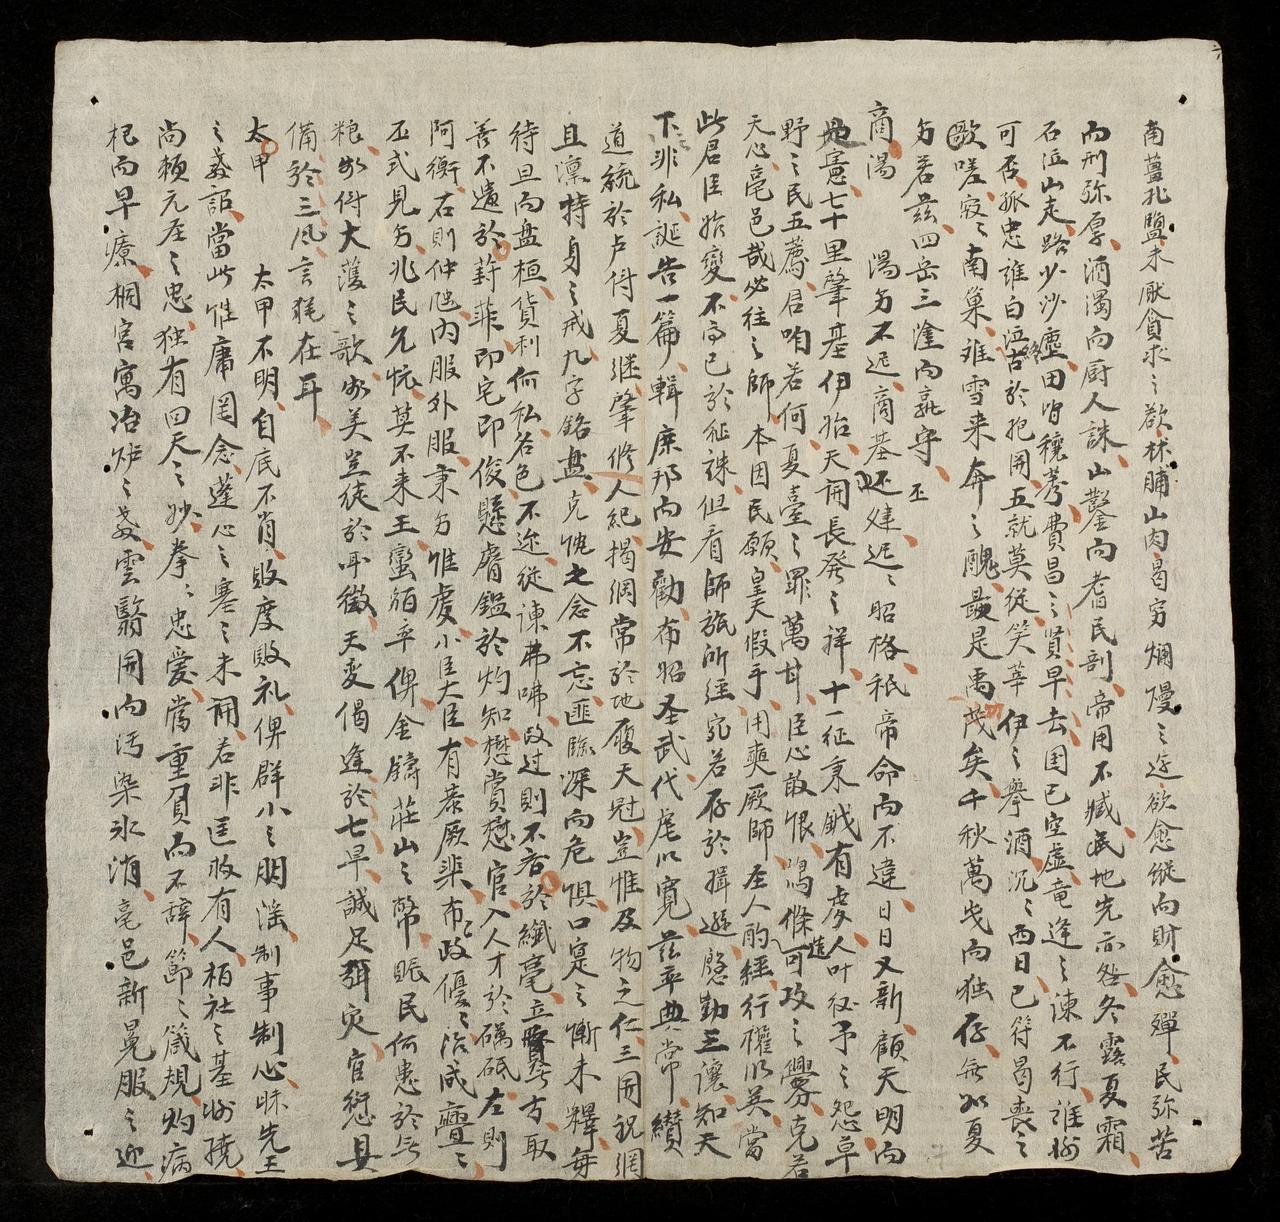 南薑孔鹽未厭貪求之欲林脯山肉曷穷爛熳之逰欲愈縱而財愈殫民弥苦
而刑弥厚酒濁而厨人誅山鑿而耆民剖帝用不臧民地先示咎冬露夏霜
石泣山走路少沙塵田皆穢莠費昌之賢早去国已空虚竜逢之諫不行誰
可否孤忠誰白泣於抱開五就莫從笑莘伊之擧酒沉沉西日已符曷喪之
歌嗟寂之南巢难雪来奔之醜最是禹茂矣千秋萬歲而独存無如夏
穷若兹四岳三塗而孰守
商湯 湯穷不迟商基还建迟迟昭格祇帝命而不違日日又新顧天明而
憲七十里肇基伊始天開長発之祥十一征秉鉞有光人叶徯予之怨草
野之民五薦君咱若何夏臺之罪萬甘臣心敢恨鳴條可攻之釁克若
天心亳邑哉必往之師本因民願皇天假手用爽厥師圣人酌經行權以英當
此君臣始變不淂已於征誅但看師旅所經宛若存於揖遜慇勤三讓知天
下非私誕告一篇輯庶邦而安勸布昭圣武代虐以寛兹率典常纘
道統於卢付夏継肇修人紀揭綱常於地履天冠豈惟及物之仁三開祝網
且凛特身之戒九字銘盘克愧之念不忘匪臨深而危惧口寔之慚未釋每
待旦而盘桓貨利何私名色不迩從諫弗咈改过則不吝於纖毫立賢方取
善不遺於葑菲即宅即俊懸膺鑑於灼知懋賞懋官入人才於礪砥左則
阿衡右則仲虺内服外服秉穷惟虔小臣大臣有恭厥棐布政優優治成亹亹
丕式見穷兆民允忱莫不来王蛮貊率俾金鑄莊山之幣賑民何患於無
粮如付大濩之歌如美豈徒於耳徵天変偈逢於七旱誠足弭灾官愆具
備於三风言犹在耳
太甲 太甲不明自底不肖敗度敗礼俾群小之朋滛制事制心昧先王
之義詔當此惟庸罔念蓬心之塞之未開若非匡敃有人栢社之基燒
尚頼元圣之忠独有回天之妙拳拳忠爱當重負而不辞節節箴規灼病
杞而早療桐宫寓冶炉之義雲翳開而污染氷消亳邑新冕服之迎